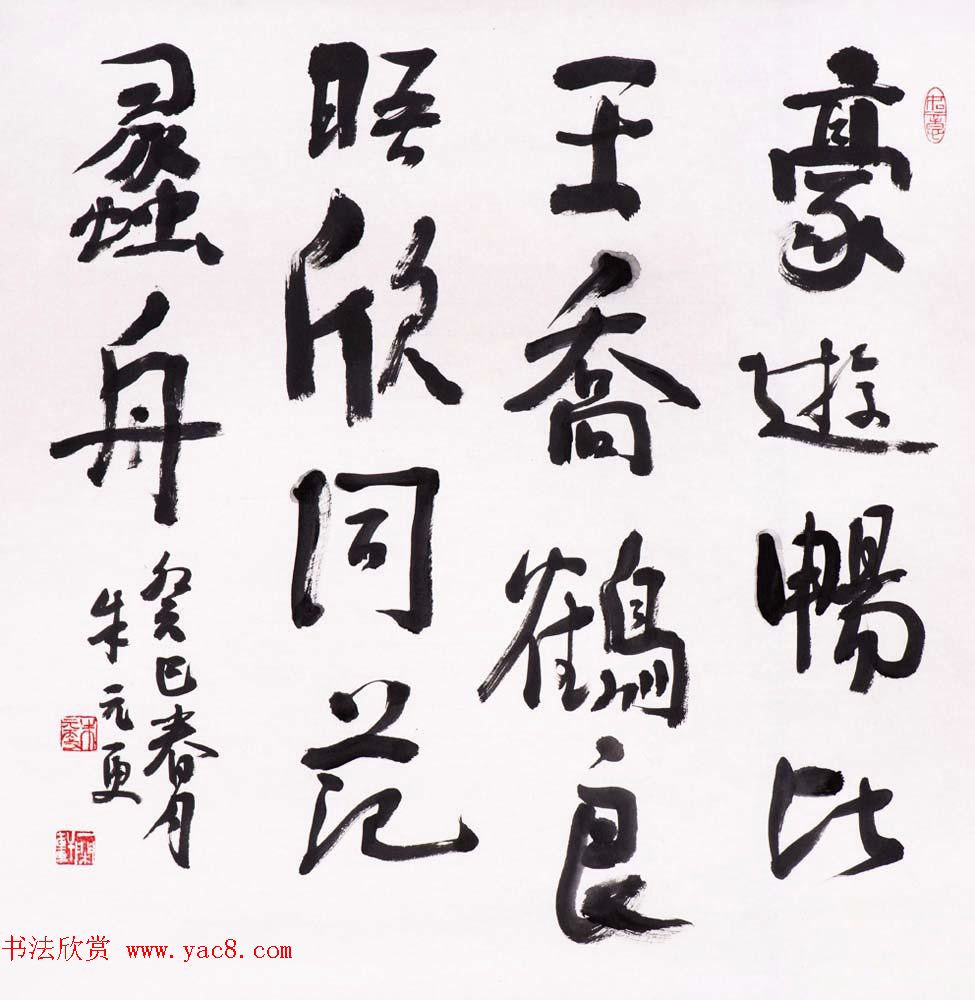 豪遊暢比
王喬鶴良
晤欣同范
蠡舟
癸巳春月
朱元更
书法欣赏 www.yac8.com